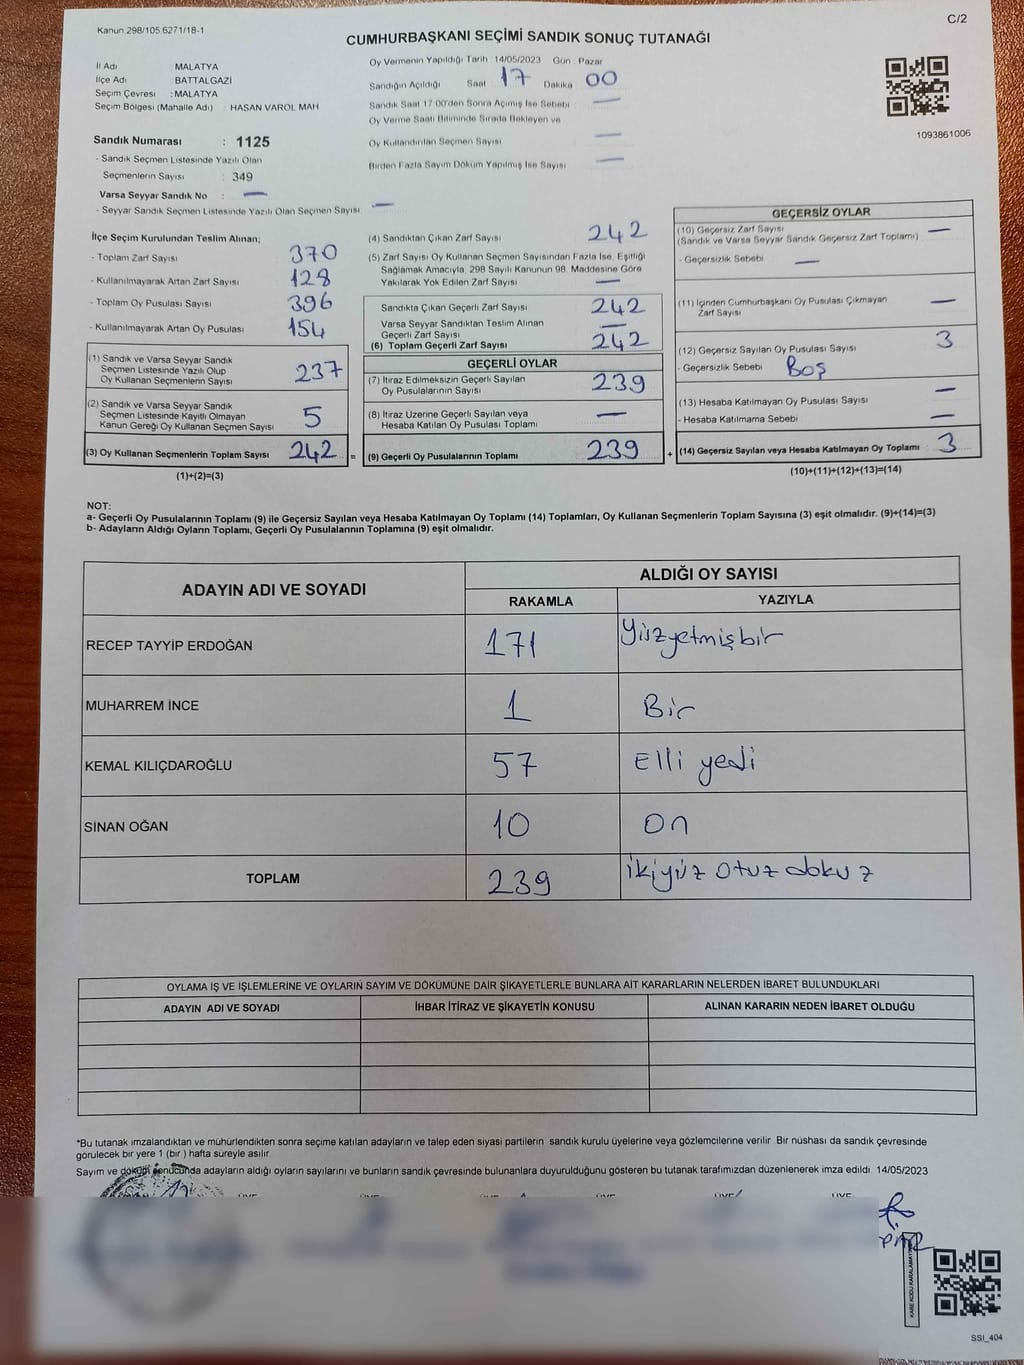 Kanun 298/105 6271/18-1
C/2
CUMHURBAŞKANI SEÇİMİ SANDIK SONUÇ TUTANAĞI
İl Adı MALATYA
İlçe Adı BATTALGAZİ
Seçim Çevresi : MALATYA
Seçim Bölgesi (Mahalle Adı) : HASAN VAROL MAH
Oy Vermenin Yapıldığı Tarih : 14/05/2023 Gün : Pazar
Sandığın Açıldığı Saat 17 Dakika 00
Sandık Saat 17:00'den Sonra Açılmış İse Sebebi —
Oy Verme Saati Bitiminde Sırada Bekleyen ve
Oy Kullandırılan Seçmen Sayısı —
Birden Fazla Sayım Döküm Yapılmış İse Sayısı —
1093861006
Sandık Numarası : 1125
- Sandık Seçmen Listesinde Yazılı Olan
Seçmenlerin Sayısı : 349
Varsa Seyyar Sandık No : —
- Seyyar Sandık Seçmen Listesinde Yazılı Olan Seçmen Sayısı —
İlçe Seçim Kurulundan Teslim Alınan;
- Toplam Zarf Sayısı 370
- Kullanılmayarak Artan Zarf Sayısı 128
- Toplam Oy Pusulası Sayısı 396
- Kullanılmayarak Artan Oy Pusulası 154
(1) Sandık ve Varsa Seyyar Sandık
Seçmen Listesinde Yazılı Olup
Oy Kullanan Seçmenlerin Sayısı 237
(2) Sandık ve Varsa Seyyar Sandık
Seçmen Listesinde Kayıtlı Olmayan
Kanun Gereği Oy Kullanan Seçmen Sayısı 5
(3) Oy Kullanan Seçmenlerin Toplam Sayısı 242 =
(1)+(2)=(3)
(4) Sandıktan Çıkan Zarf Sayısı 242
(5) Zarf Sayısı Oy Kullanan Seçmen Sayısından Fazla İse, Eşitliği
Sağlamak Amacıyla, 298 Sayılı Kanunun 98. Maddesine Göre
Yakılarak Yok Edilen Zarf Sayısı —
Sandıkta Çıkan Geçerli Zarf Sayısı 242
Varsa Seyyar Sandıktan Teslim Alınan
Geçerli Zarf Sayısı —
(6) Toplam Geçerli Zarf Sayısı 242
GEÇERLİ OYLAR
(7) İtiraz Edilmeksizin Geçerli Sayılan
Oy Pusulalarının Sayısı 239
(8) İtiraz Üzerine Geçerli Sayılan veya
Hesaba Katılan Oy Pusulası Toplamı —
(9) Geçerli Oy Pusulalarının Toplamı 239 +
GEÇERSİZ OYLAR
(10) Geçersiz Zarf Sayısı —
(Sandık ve Varsa Seyyar Sandık Geçersiz Zarf Toplamı)
- Geçersizlik Sebebi —
(11) İçinden Cumhurbaşkanı Oy Pusulası Çıkmayan
Zarf Sayısı —
(12) Geçersiz Sayılan Oy Pusulası Sayısı 3
- Geçersizlik Sebebi Boş
(13) Hesaba Katılmayan Oy Pusulası Sayısı —
- Hesaba Katılmama Sebebi —
(14) Geçersiz Sayılan veya Hesaba Katılmayan Oy Toplamı 3
(10)+(11)+(12)+(13)=(14)
NOT:
a- Geçerli Oy Pusulalarının Toplamı (9) ile Geçersiz Sayılan veya Hesaba Katılmayan Oy Toplamı (14) Toplamları, Oy Kullanan Seçmenlerin Toplam Sayısına (3) eşit olmalıdır. (9)+(14)=(3)
b- Adayların Aldığı Oyların Toplamı, Geçerli Oy Pusulalarının Toplamına (9) eşit olmalıdır.
ADAYIN ADI VE SOYADI
ALDIĞI OY SAYISI
RAKAMLA YAZIYLA
RECEP TAYYİP ERDOĞAN 171 Yüzyetmişbir
MUHARREM İNCE 1 Bir
KEMAL KILIÇDAROĞLU 57 Elli yedi
SİNAN OĞAN 10 On
TOPLAM 239 ikiyüz otuz dokuz
OYLAMA İŞ VE İŞLEMLERİNE VE OYLARIN SAYIM VE DÖKÜMÜNE DAİR ŞİKAYETLERLE BUNLARA AİT KARARLARIN NELERDEN İBARET BULUNDUKLARI
ADAYIN ADI VE SOYADI İHBAR İTİRAZ VE ŞİKAYETİN KONUSU ALINAN KARARIN NEDEN İBARET OLDUĞU
*Bu tutanak imzalandıktan ve mühürlendikten sonra seçime katılan adayların ve talep eden siyasi partilerin sandık kurulu üyelerine veya gözlemcilerine verilir. Bir nüshası da sandık çevresinde
görülecek bir yere 1 (bir) hafta süreyle asılır.
Sayım ve döküm sonucunda adayların aldığı oyların sayılarını ve bunların sandık çevresinde bulunanlara duyurulduğunu gösteren bu tutanak tarafımızdan düzenlenerek imza edildi. 14/05/2023
SSI_404